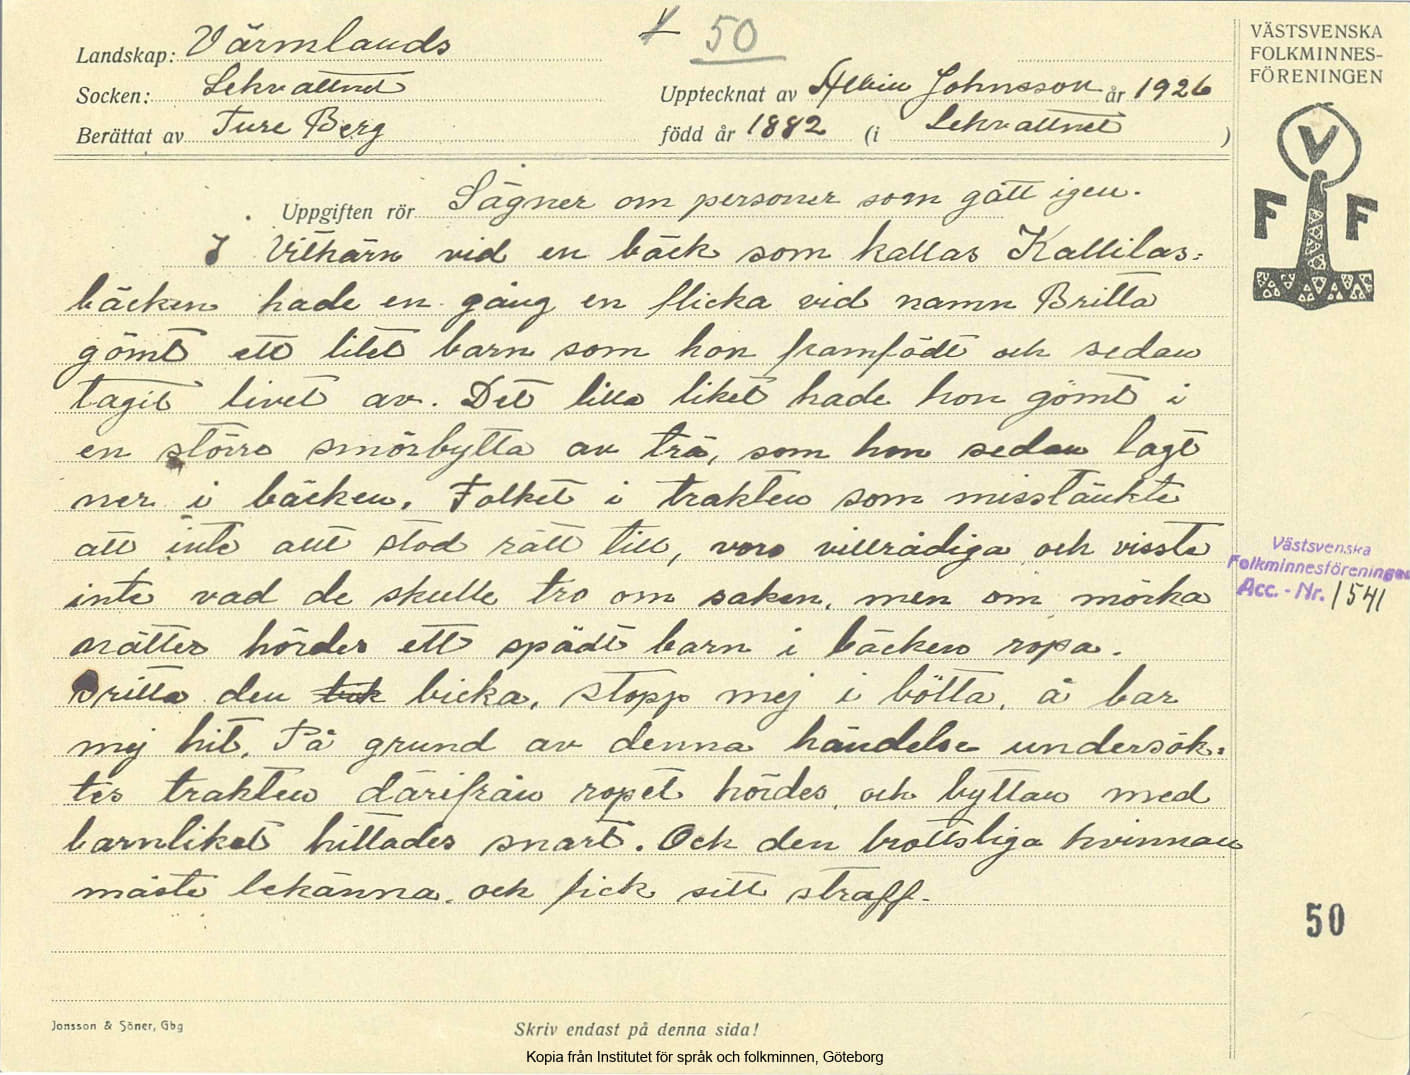 + 50
VÄSTSVENSKA
FOLKMINNES-
FÖRENINGEN
Landskap: Värmlands
Socken: Lekvattnet
Upptecknat av Albin Johnsson år 1926
Berättat av Ture Berg
född år 1882 (i Lekvattnet )
V
F F
Uppgiften rör Sägner om personer som gått igen.
I Vitkärn vid en bäck som kallas Kallilas-
bäcken hade en gång en flicka vid namn Britta
gömt ett litet barn som hon framfödt och sedan
tagit livet av. Det lilla liket hade hon gömt i
en större smörbytta av trä, som hon sedan lagt
ner i bäcken. Folket i trakten som misstänkte
att inte allt stod rätt till, voro villrådiga och visste
inte vad de skulle tro om saken, men om mörka
nätter hördes ett spädt barn i bäcken ropa.
Britta den bicka, stopp mej i bötta, å bar
mej hit. På grund av denna händelse undersök-
tes trakten därifrån ropet hördes, och byttan med
barnliket hittades snart. Och den brottsliga kvinnan
måste bekänna, och fick sitt straff.
Västsvenska
Folkminnesföreningen
Acc. - Nr. 1541
50
Jonsson & Söner, Gbg
Skriv endast på denna sida!
Kopia från Institutet för språk och folkminnen, Göteborg